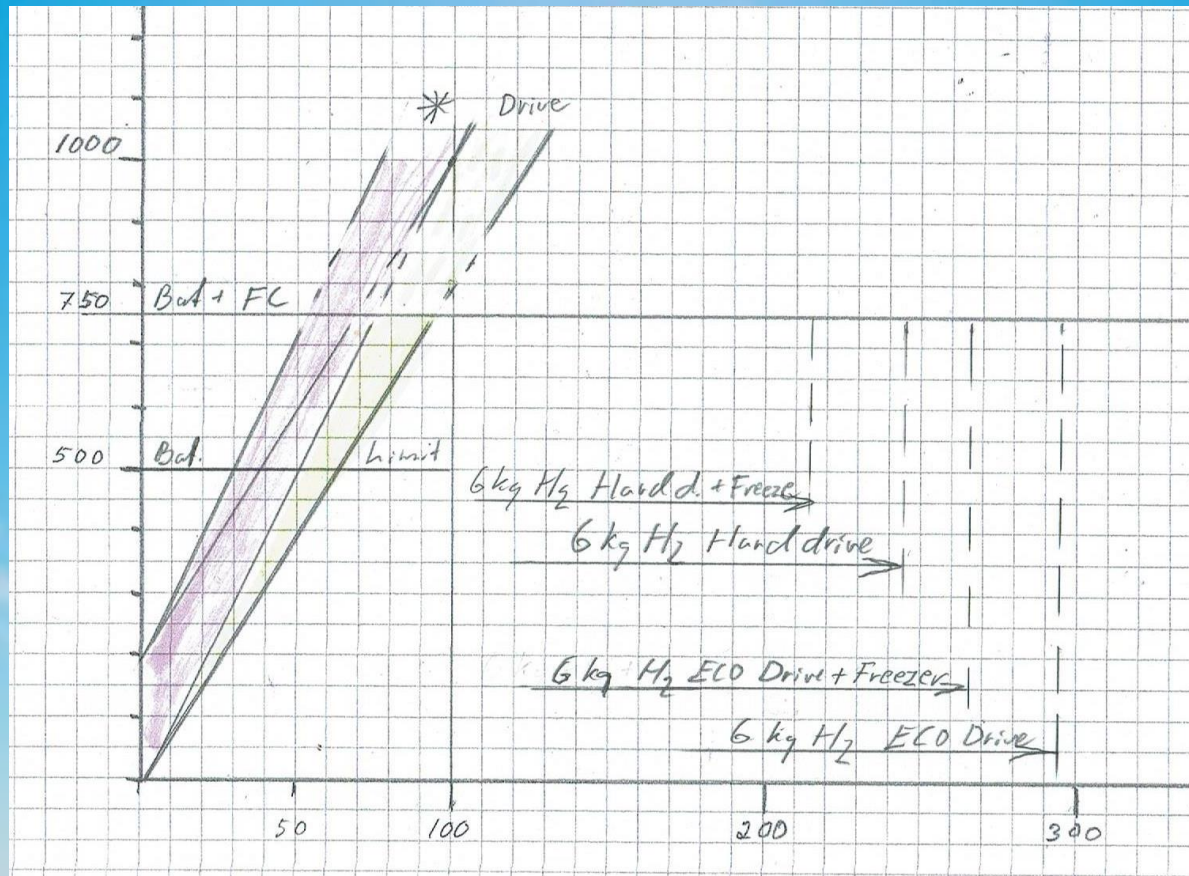 * Drive
1000
750 Bat + FC
500 Bat. Limit
6 kg H2 Hard d. + Freezer
6 kg H2 Hard drive
6 kg H2 ECO Drive + Freezer
6 kg H2 ECO Drive
50 100 200 300